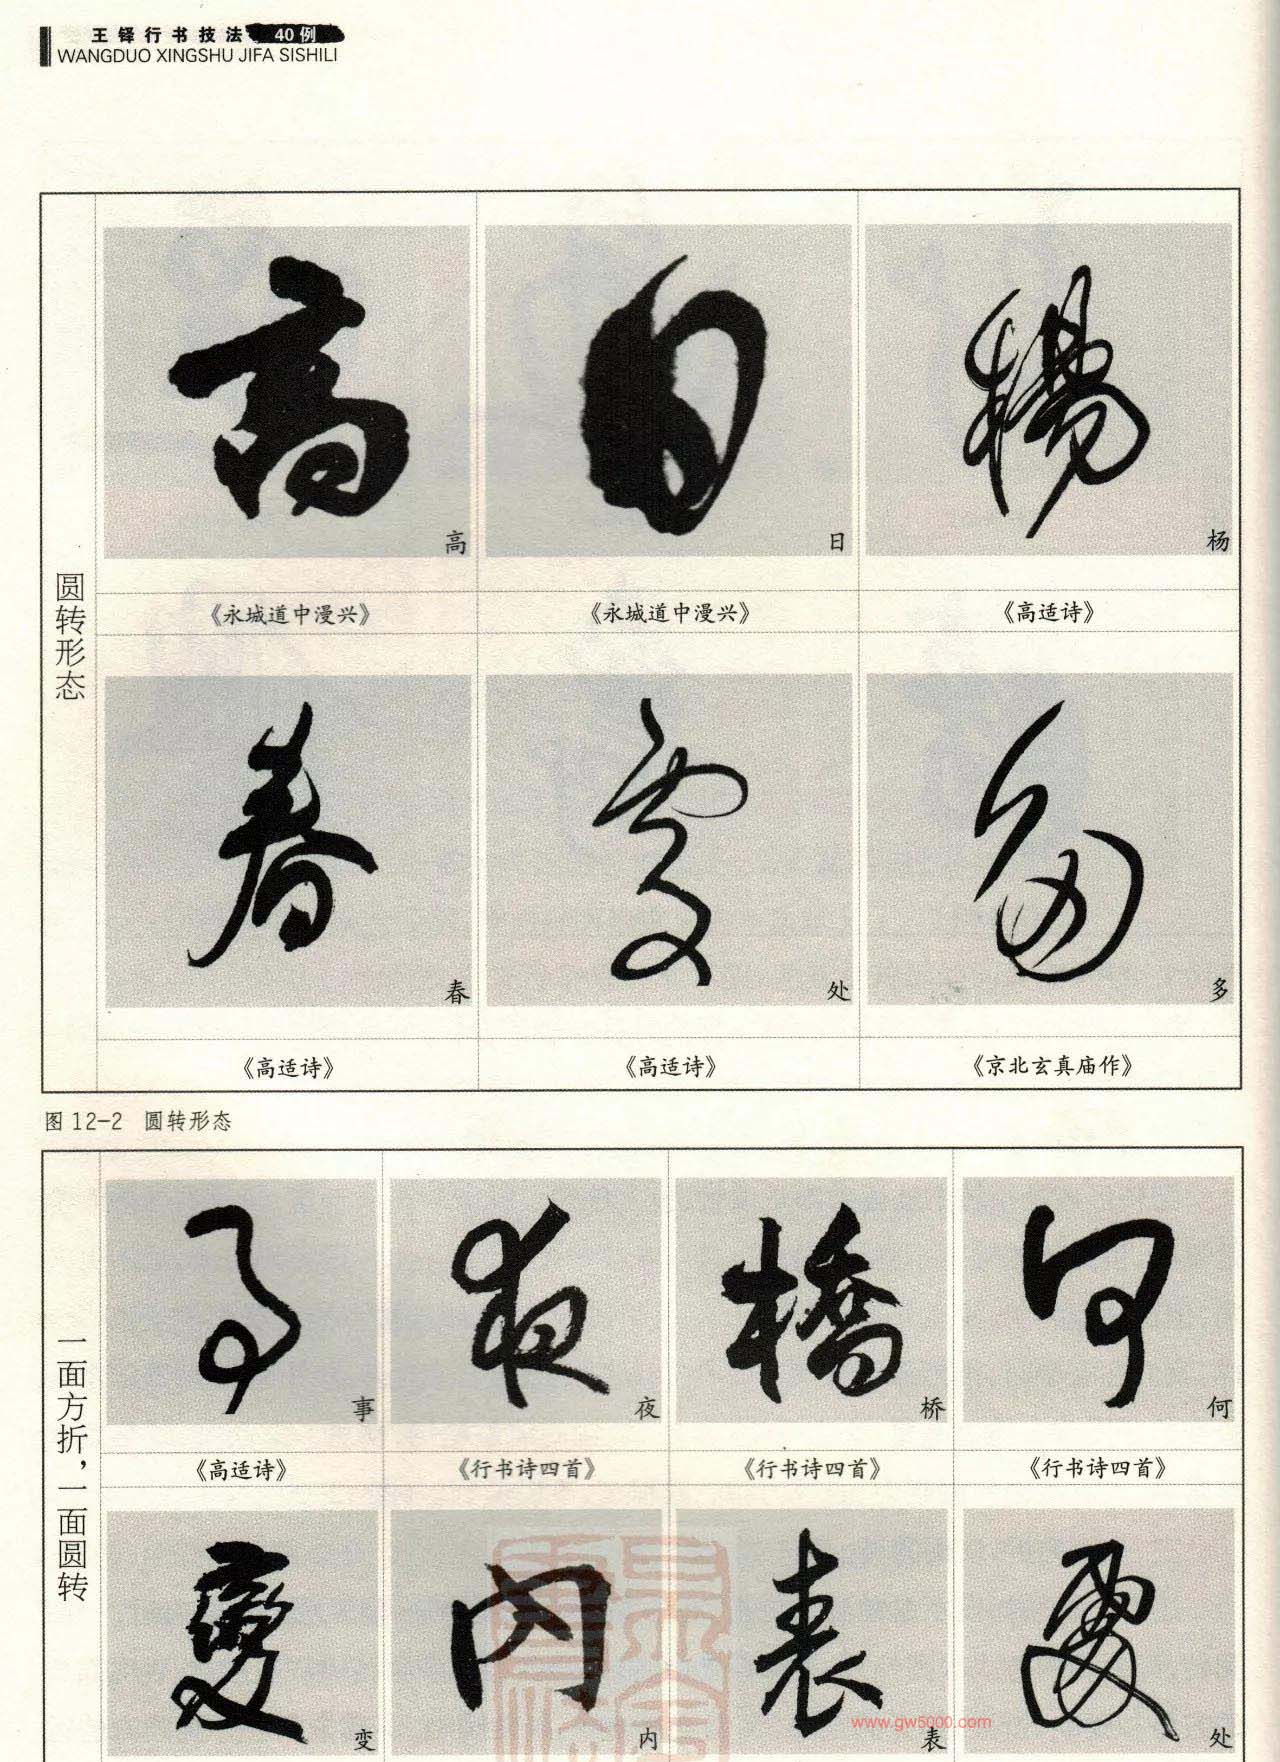 王铎行书技法 40例
WANGDUO XINGSHU JIFA SISHILI
圆转形态
高
日
杨
《永城道中漫兴》
《永城道中漫兴》
《高适诗》
春
处
多
《高适诗》
《高适诗》
《京北玄真庙作》
图 12-2 圆转形态
一面方折，一面圆转
事
夜
桥
何
《高适诗》
《行书诗四首》
《行书诗四首》
《行书诗四首》
变
内
表
处
www.gw5000.com